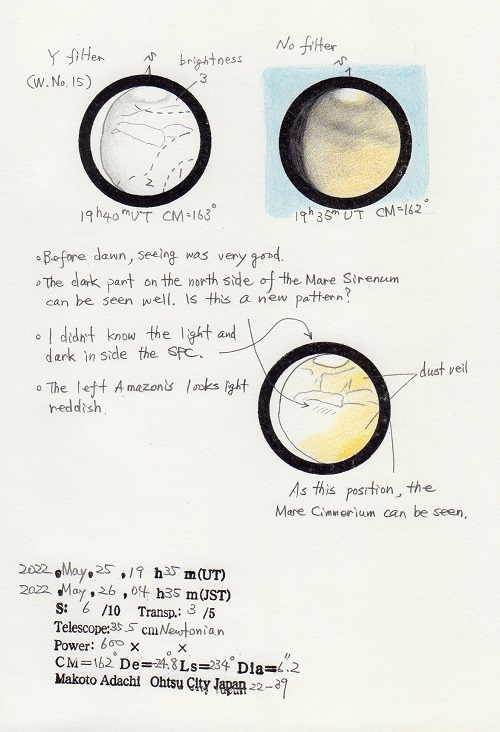 Y filter
(W.No.15)
brightness
3
2
1
19h40mUT CM=163°
No filter
19h35mUT CM=162°
Before dawn, seeing was very good.
The dark part on the north side of the Mare Sirenum
can be seen well. Is this a new pattern?
I didn't know the light and
dark in side the SPC.
The left Amazonis looks light
reddish.
dust veil
As this position, the
Mare Cimmerium can be seen.
2022 May. 25 , 19 h35 m(UT)
2022 May. 26 , 04 h35 m(JST)
S: 6 /10 Transp.: 3 /5
Telescope:35.5 cm Newtonian
Power: 600 × ×
CM=162° De=-24.8° Ls=234° Dia=6.2"
Makoto Adachi Ohtsu City Japan 22-39